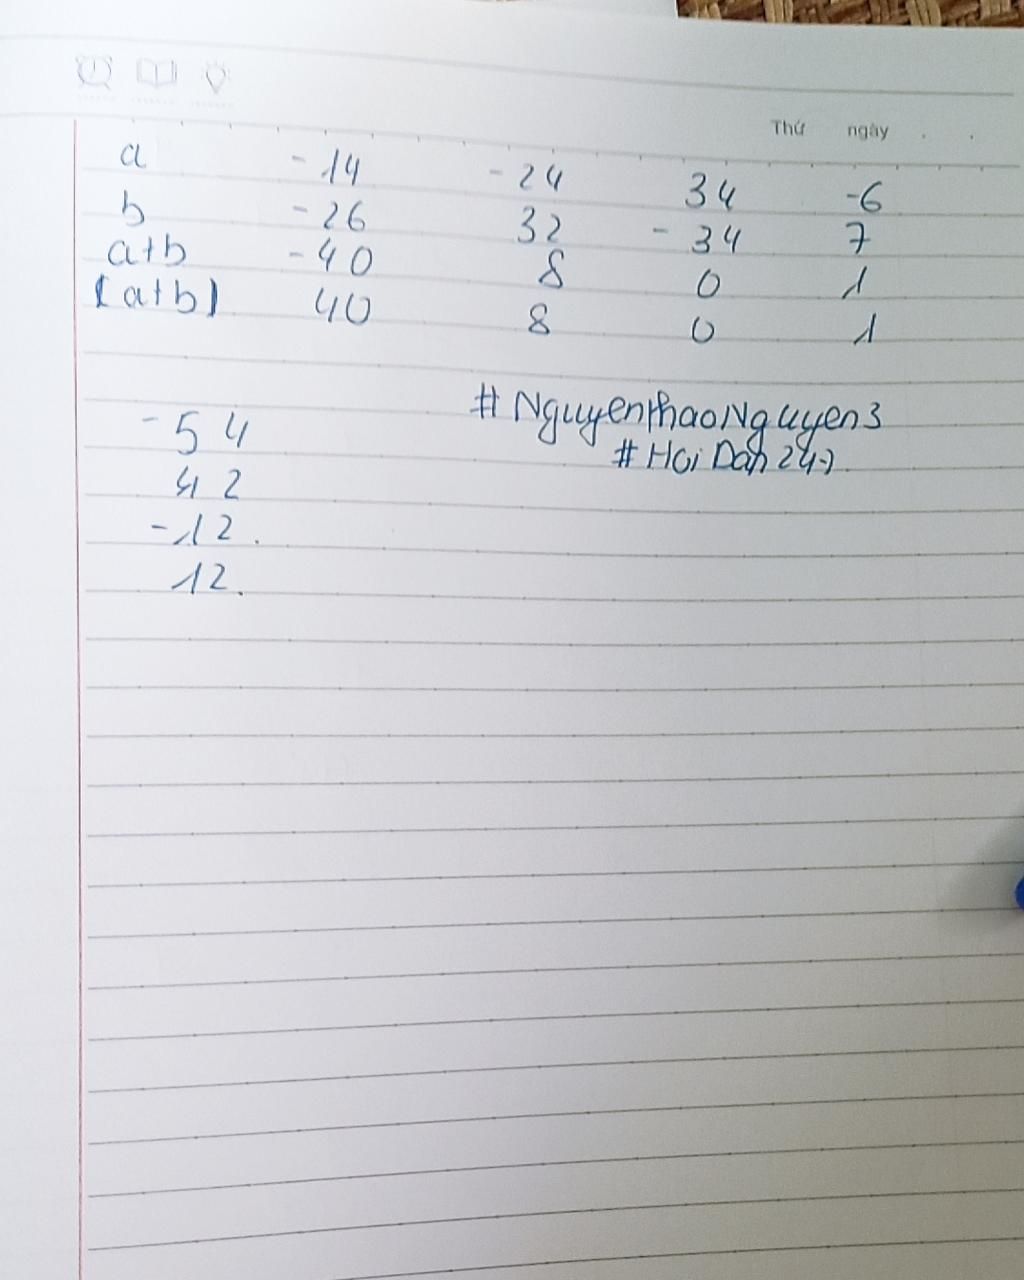 Thứ ngày . .
a -14 -24 34 -6
b -26 32 -34 7
a+b -40 8 0 1
[a+b] 40 8 0 1
#NguyenthaoNguyen3
#Hoi Dan 247
-54
42
-12.
12.